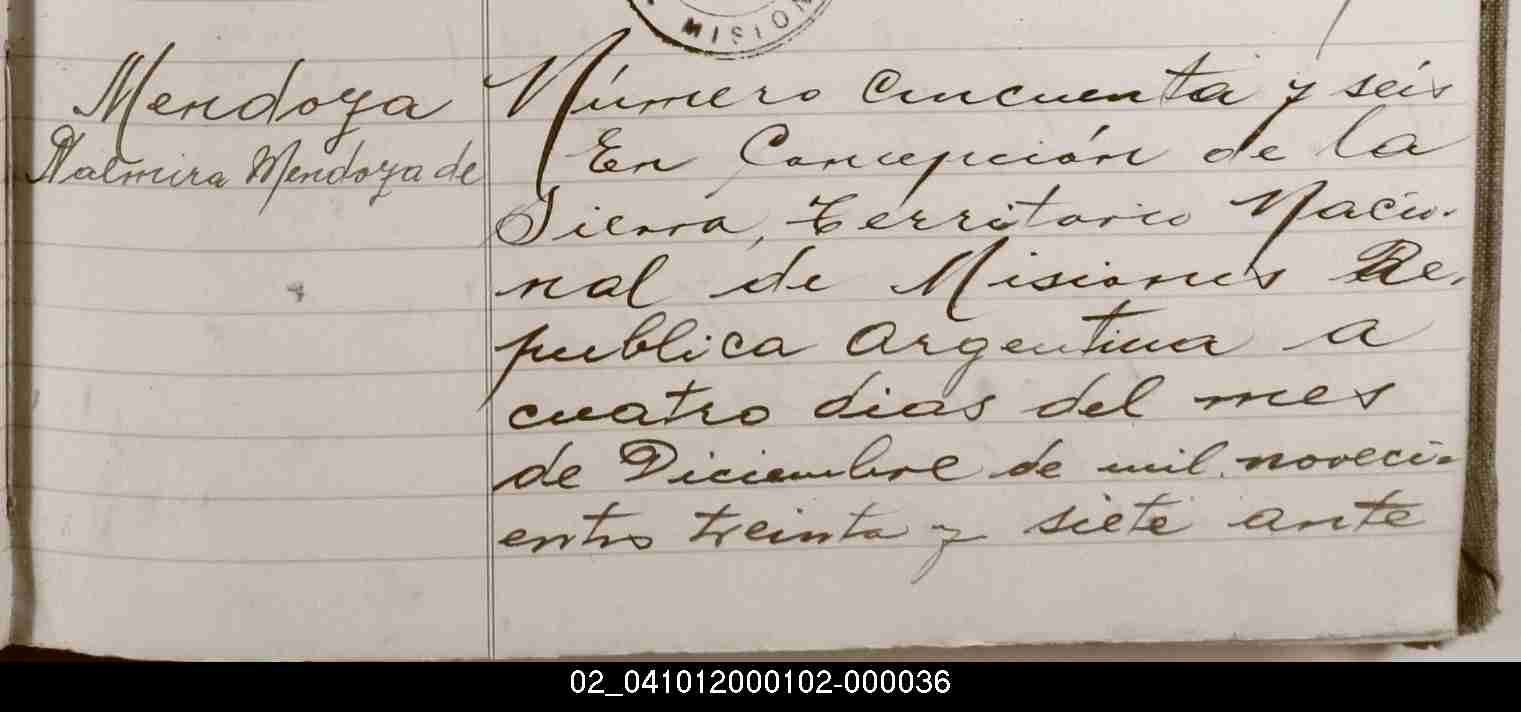 MISION
Mendoza
Palmira Mendoza de
Número cincuenta y seis
En Concepción de la
Sierra, Territorio Nacio-
nal de Misiones Re-
publica Argentina a
cuatro dias del mes
de Diciembre de mil noveci-
entos treinta y siete ante
02_041012000102-000036